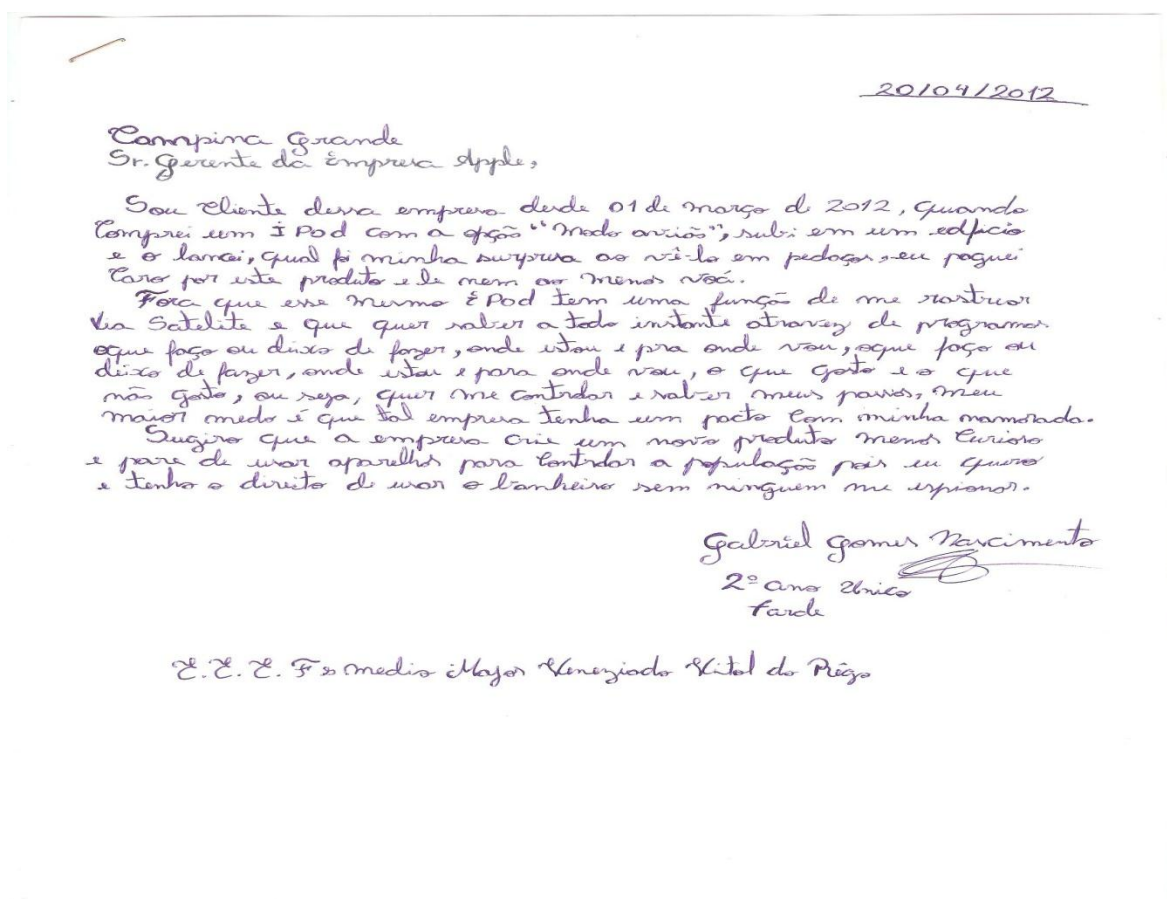 20/04/2012
Campina Grande
Sr. Gerente da Empresa Apple,
Sou cliente dessa empresa desde 01 de março de 2012, quando
comprei um iPod com a opção "modo avião", subi em um edficio
e o lancei, qual foi minha surpresa ao vê-lo em pedaços, eu paguei
caro por este produto e le nem ao menos voá.
Fora que esse mesmo iPod tem uma função de me rastrear
via Satelite e que quer saber a todo instante atravez de programas
oque faço ou deixo de fazer, onde estou e pra onde vou, oque faço ou
deixo de fazer, onde estou e para onde vou, o que gosto e o que
não gosto, ou seja, quer me controlar e saber meus passos, meu
maior medo é que tal empresa tenha um pacto com minha namorada.
Sugiro que a empresa crie um novo produto menos curioso
e pare de usar aparelhos para controlar a população pois eu quero
e tenho o direito de usar o banheiro sem ninguem me espionar.
Gabriel Gomes Nascimento
2º ano Unico
tarde
E.E.E. F e medio Major Veneziado Vital do Rêgo